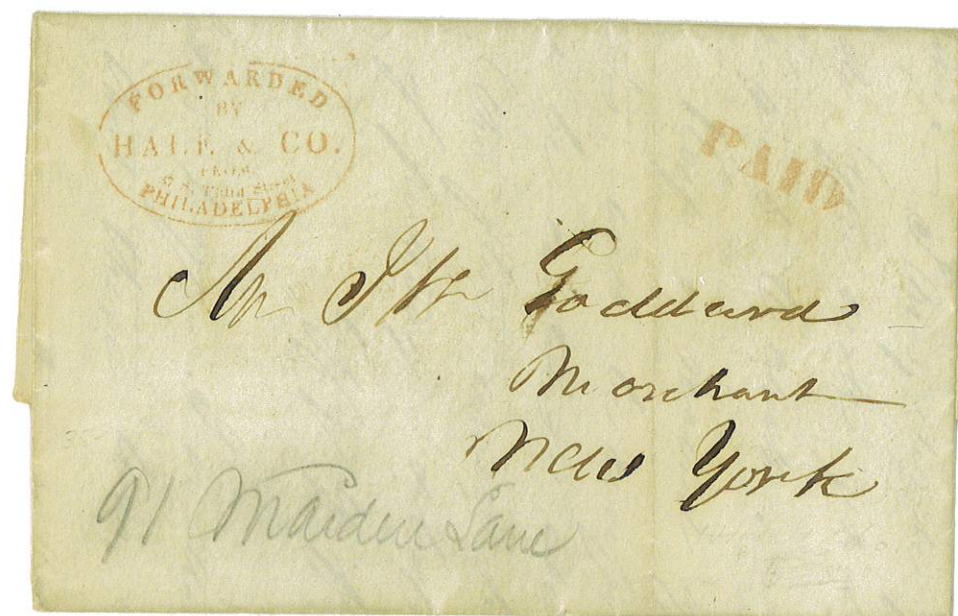 FORWARDED
BY
HALE & CO.
FROM
Third Street
PHILADELPHIA
PAID
Mr J W Goddard
Merchant
New York
91 Maiden Lane